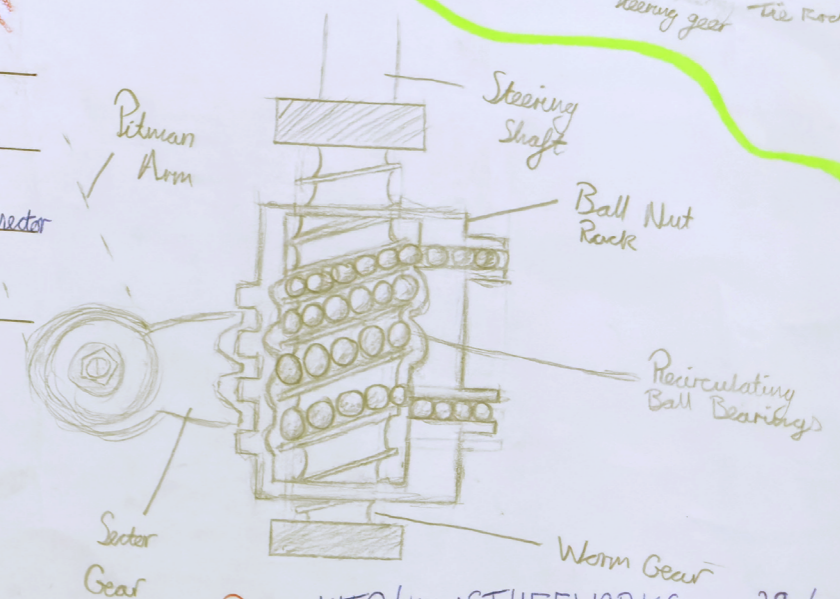 steering gear
Tie Rod
Steering
Shaft
Pitman
Arm
Ball Nut
Rack
sector
Recirculating
Ball Bearings
Sector
Gear
Worm Gear